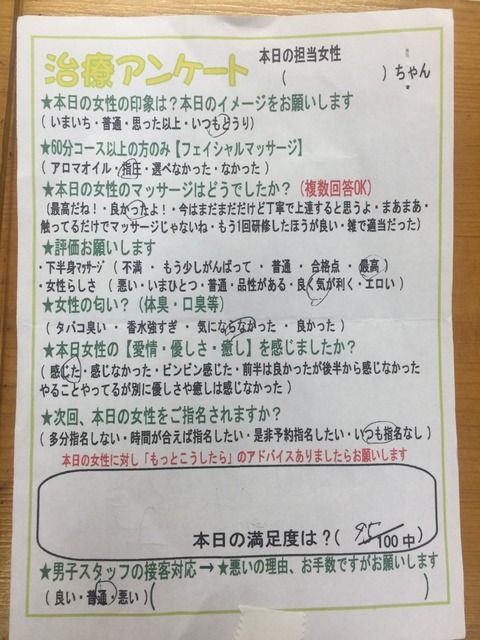 治療アンケート
本日の担当女性
( )ちゃん
★本日の女性の印象は？本日のイメージをお願いします
(いまいち・普通・思った以上・いつもどうり)
★60分コース以上の方のみ【フェイシャルマッサージ】
(アロマオイル・指圧・選べなかった・なかった)
★本日の女性のマッサージはどうでしたか？(複数回答OK)
(最高だね！・良かったよ！・今はまだまだだけど丁寧で上達すると思うよ・まあまあ・
触ってるだけでマッサージじゃないね・もう1回研修したほうが良い・雑で適当だった)
★評価お願いします
・下半身マッサージ(不満・もう少しがんばって・普通・合格点・最高)
・女性らしさ(悪い・いまひとつ・普通・品性がある・良く気が利く・エロい)
★女性の匂い？(体臭・口臭等)
(タバコ臭い・香水強すぎ・気にならなかった・良かった)
★本日女性の【愛情・優しさ・癒し】を感じましたか？
(感じた・感じなかった・ビンビン感じた・前半は良かったが後半から感じなかった
やることやってるが別に優しさや癒しは感じなかった)
★次回、本日の女性をご指名されますか？
(多分指名しない・時間が合えば指名したい・是非予約指名したい・いつも指名なし)
本日の女性に対し「もっとこうしたら」のアドバイスありましたらお願いします
本日の満足度は？(95/100中)
★男子スタッフの接客対応→★悪いの理由、お手数ですがお願いします
(良い・普通・悪い)( )